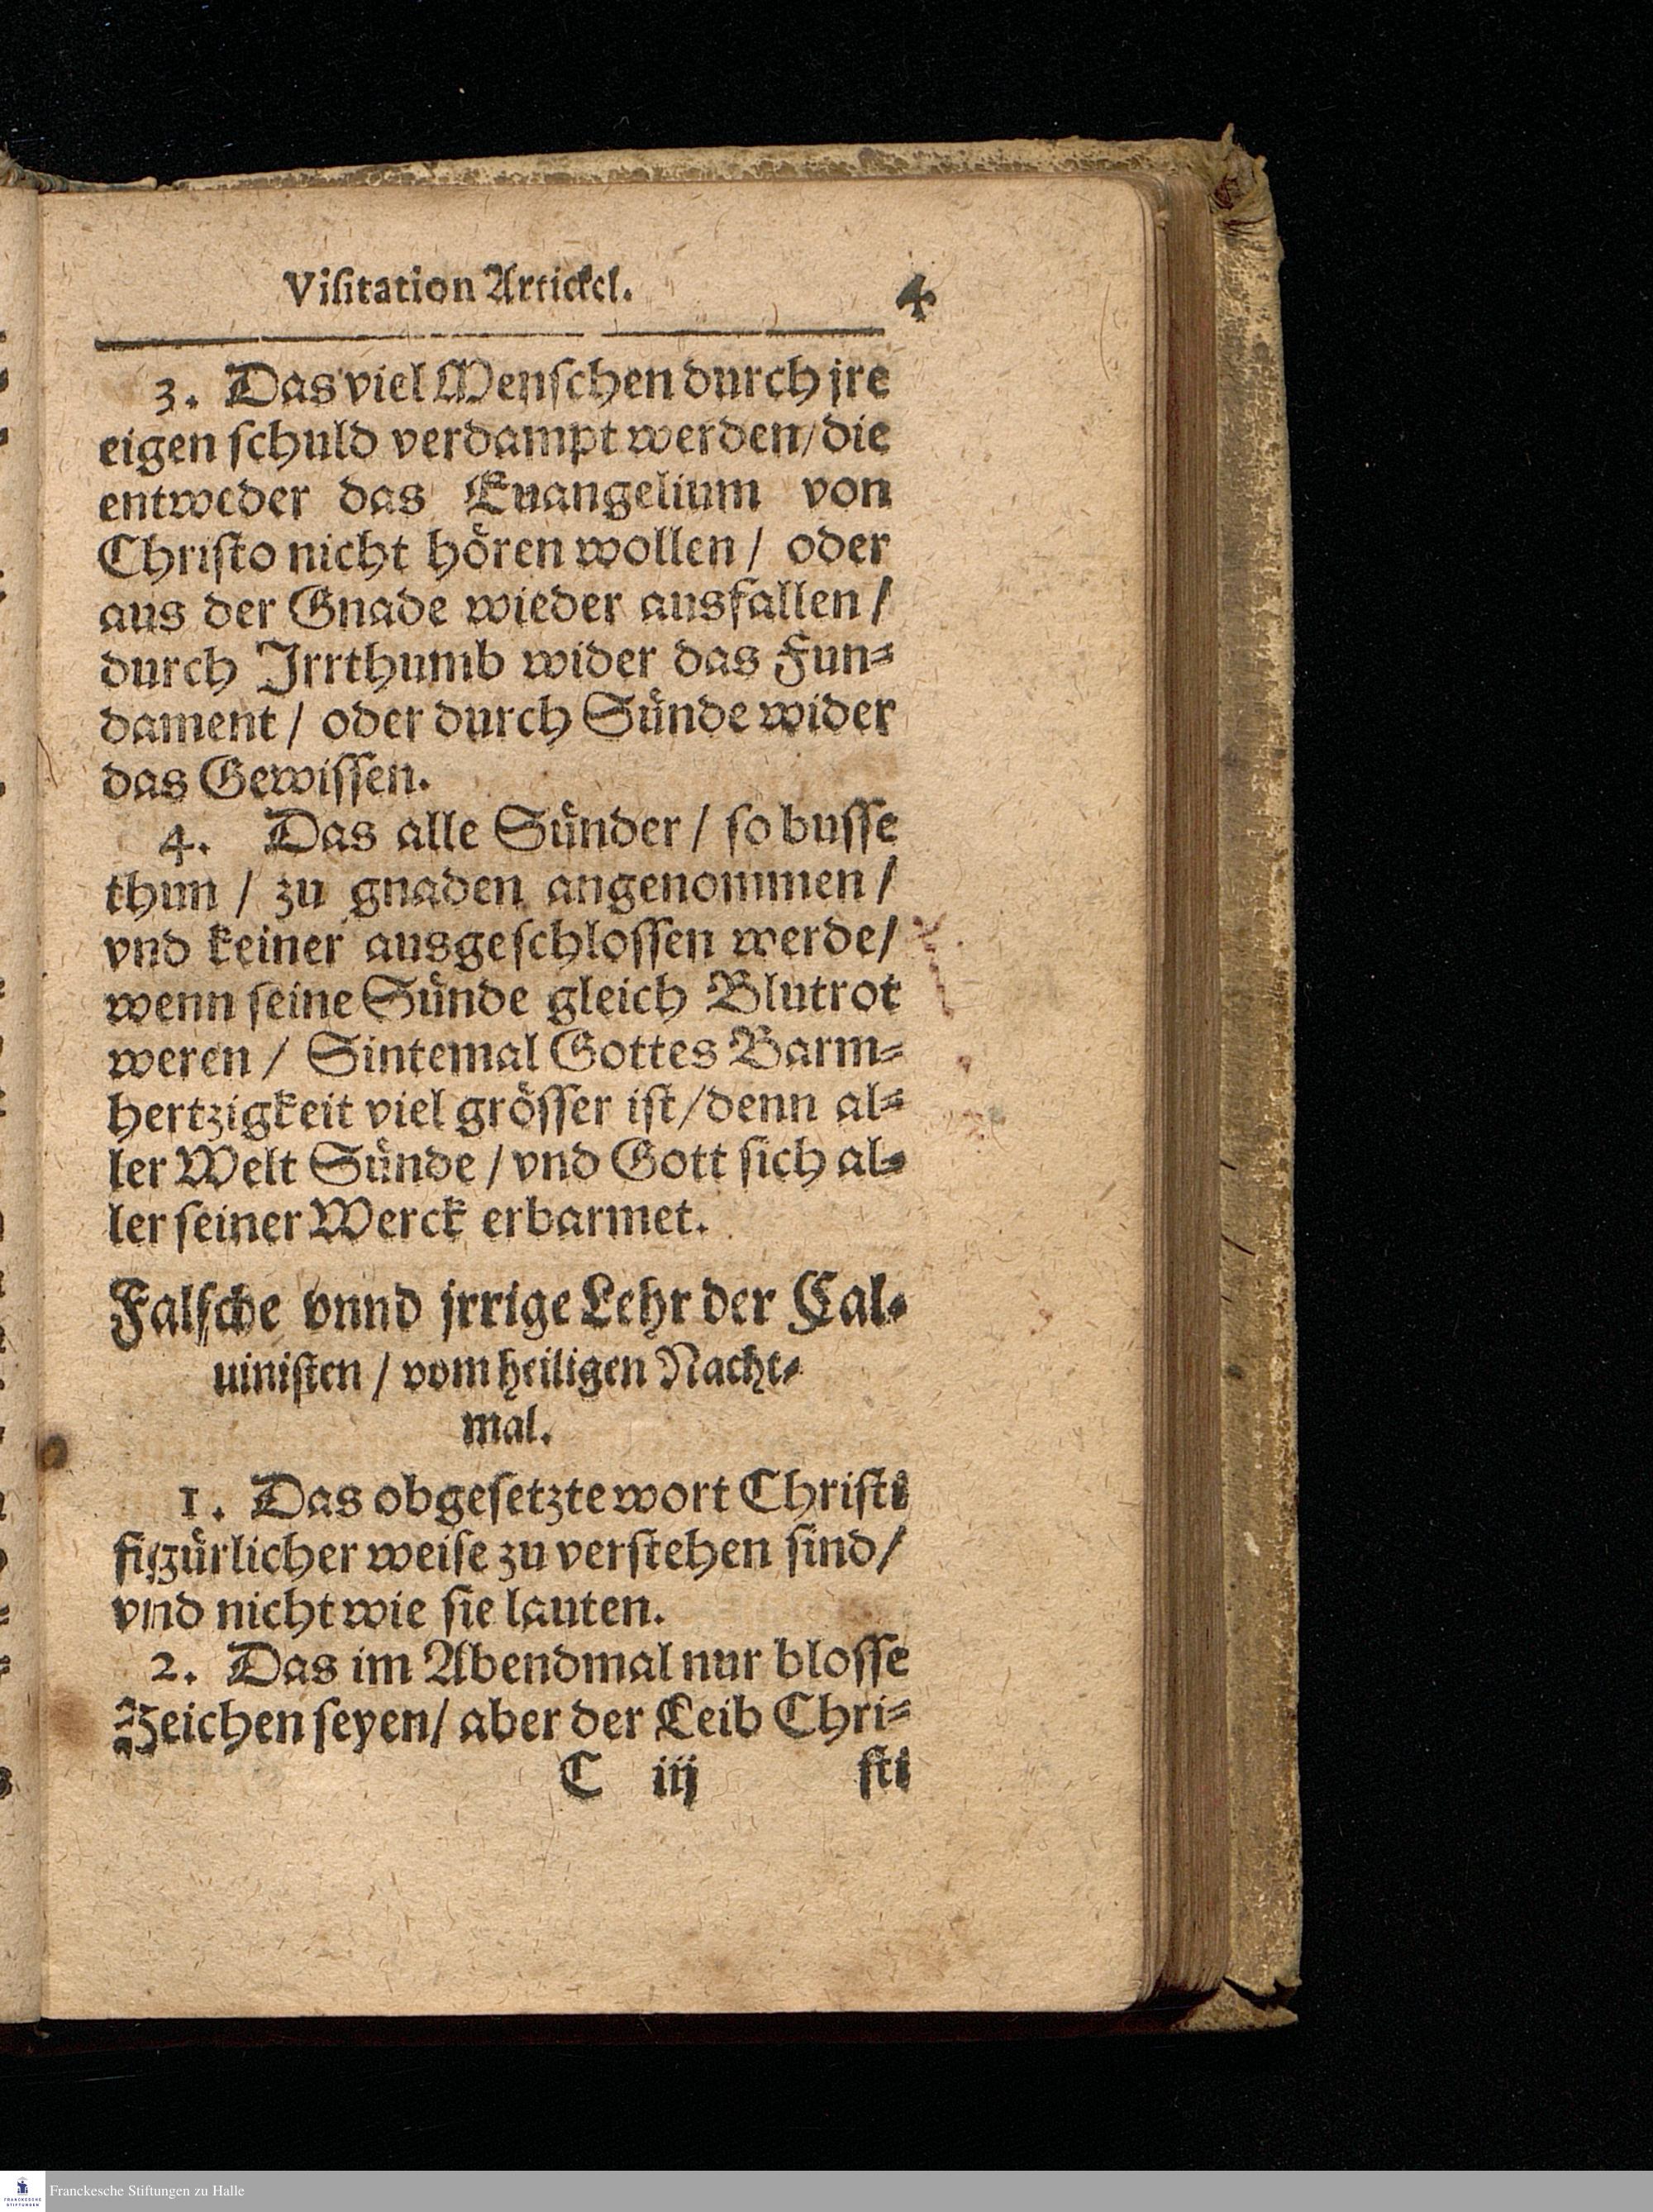 Visitation Artickel.
4
3. Das viel Menschen durch jre
eigen schuld verdampt werden/die
entweder das Euangelium von
Christo nicht hören wollen / oder
aus der Gnade wieder ausfallen /
durch Irrthumb wider das Fun-
dament / oder durch Sünde wider
das Gewissen.
4. Das alle Sünder / so busse
thun / zu gnaden angenommen /
vnd keiner ausgeschlossen werde/
wenn seine Sünde gleich Blutrot
weren / Sintemal Gottes Barm-
hertzigkeit viel grösser ist/denn al-
ler Welt Sünde / vnd Gott sich al-
ler seiner Werck erbarmet.
Falsche vnnd jrrige Lehr der Cal-
uinisten / vom heiligen Nacht-
mal.
1. Das obgesetzte wort Christi
figürlicher weise zu verstehen sind/
vnd nicht wie sie lauten.
2. Das im Abendmal nur blosse
Zeichen seyen/ aber der Leib Chri-
C iij
sti
Franckesche Stiftungen zu Halle
FRANCKESCHE
STIFTUNGEN